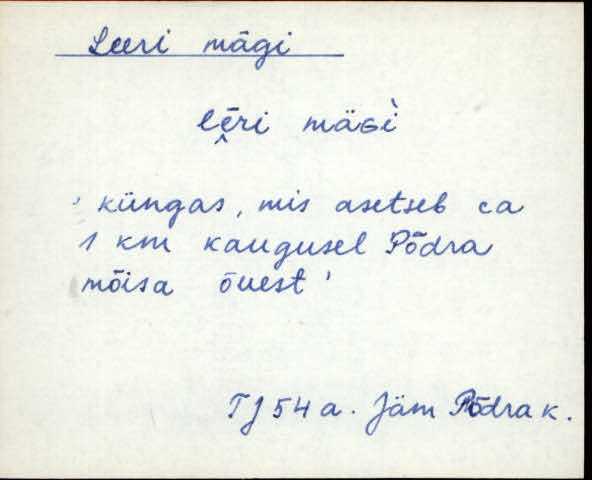 Leeri mägi
lēri mäɢì
' küngas, mis asetseb ca
1 km kaugusel Põdra
mõisa õuest '
TJ 54 a. Jäm Põdra k.